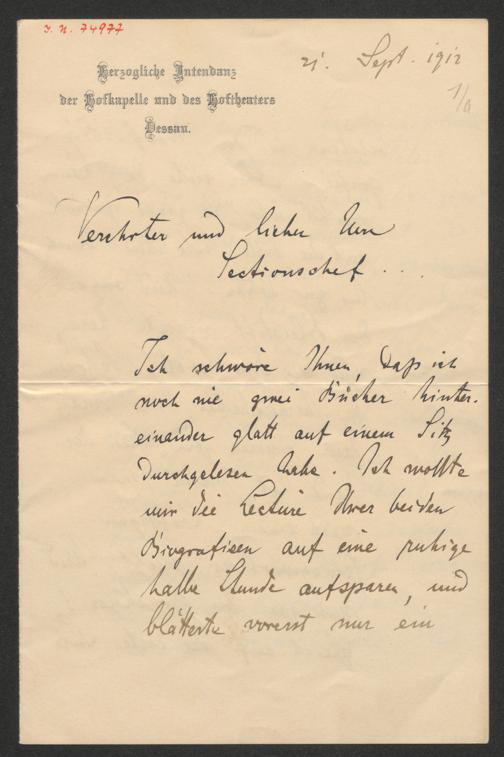 I. N. 74977
21. Sept. 1912
1/a
Herzogliche Intendanz
der Hofkapelle und des Hoftheaters
Dessau.
Verehrter und lieber Herr
Sectionschef . . .
Ich schwöre Ihnen, daß ich
noch nie zwei Bücher hinter-
einander glatt auf einem Sitz
durchgelesen habe. Ich wollte
mir die Lecture Ihrer beiden
Biografieen auf eine ruhige
halbe Stunde aufsparen, und
blätterte vorerst nur ein